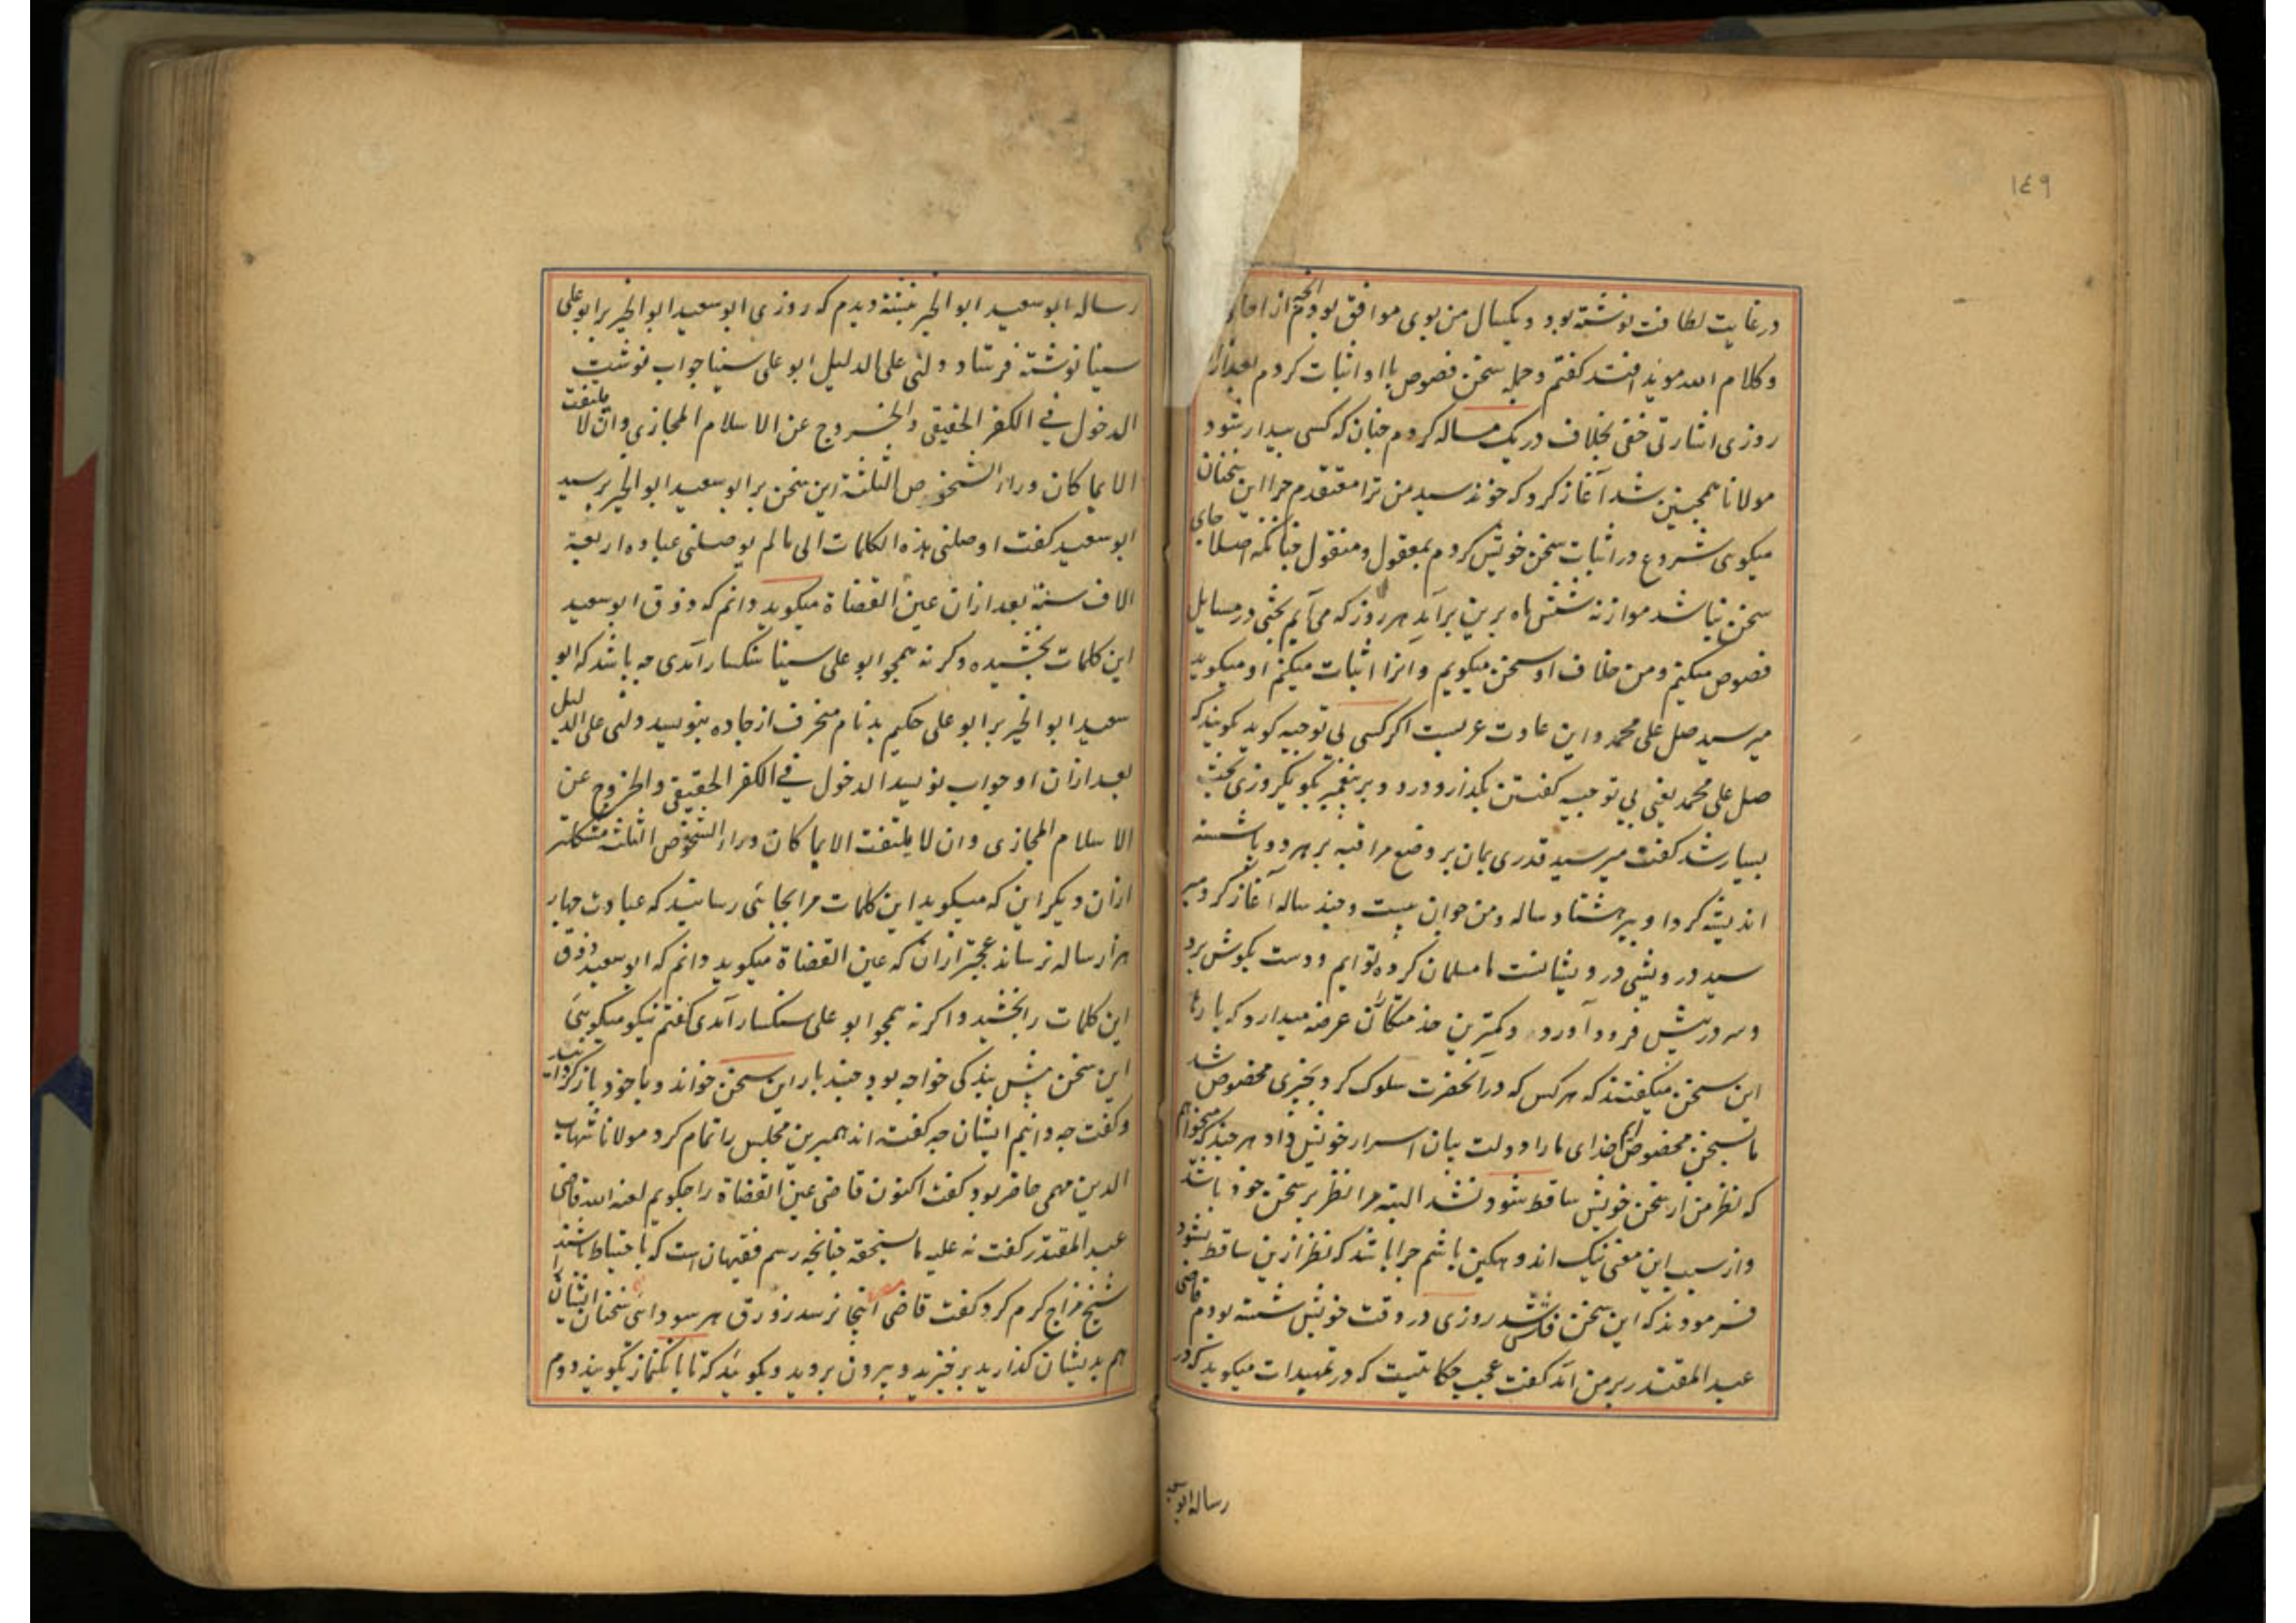 ١٤٩
در غایت لطافت نوشته بود و یکسال من بوی موافق بودم الحه از
و کلام الله موید افتد کفتم و جمله سخن فصوص باو اثبات کردم بعد ازان
روزی اشارتی خفی بخلاف در یک مساله کردم چنان که کسی بیدار شود
مولانا همچنین شد آغاز کرد که خوند سید من ترا معتقدم چرا این سخنان
میکوی شروع در اثبات سخن خویش کردم بمعقول و منقول چنانکه اصلا جای
سخن نباشد موازنه شش ماه برین برآید هر روز که می آیم بحثی در مسایل
فصوص میکنم و من خلاف او سخن میکویم و آنرا اثبات میکنم او میکوید
میر سید صل علی محمد و این عادت عربست اکر کسی بی توجیه کوید کویند که
صل علی محمد یعنی بی توجیه کفتن بکذار و درود بر پیغمبر بکو یکروزی بحث
بسیار شد کفت میر سید قدری بمان بر وضع مراقبه بر هر دو پا نشسته
اندیشه کرد او پیر هشتاد ساله و من جوان بیست و چند ساله آغاز کرد میر
سید درویشی درویشانست ما مسلمان کرده توایم و دست بکوش برد
و سر در پیش فرود آورد و کمترین خدمتکاران عرضه میدارد که بارها
این سخن میکفتند که هر کس که در آنحضرت سلوک کرد بچیزی مخصوص شد
ما بسخن مخصوص ایم خدای ما را دولت بیان اسرار خویش داد هر چند که میخواهم
که نظر من از سخن خویش ساقط شود نشد البته مرا نظر بر سخن خود باشد
و از سبب این معنی نیک اندوهکین باشم چرا باشد که نظر ازین ساقط نشود
فرمودند که این سخن فاش شد روزی در وقت خویش نشسته بودم قاضی
عبد المقتدر بر من آمد کفت عجب حکایتیست که در تمهیدات میکوید که در
رساله ابو سعید
رساله ابو سعید ابو الخیر نبشته دیدم که روزی ابو سعید ابو الخیر بر ابو علی
سینا نوشته فرستاد دلنی علی الدلیل ابو علی سینا جواب نوشت
الدخول فی الکفر الحقیقی و الخروج عن الاسلام المجازی و ان لا یلتفت
الا بما کان وراء الشخوص الثلثة این سخن بر ابو سعید ابو الخیر برسید
ابو سعید کفت اوصلنی هذه الکلمات الی ما لم یوصلنی عبادة اربعة
الاف سنة بعد ازان عین القضاة میکوید دانم که ذوق ابو سعید
این کلمات بخشیده وکرنه همچو ابو علی سینا سنکسار آمدی چه باشد که ابو
سعید ابو الخیر بر ابو علی حکیم بدنام منحرف از جاده بنویسد دلنی علی الدلیل
بعد ازان او جواب نویسد الدخول فی الکفر الحقیقی و الخروج عن
الاسلام المجازی و ان لا یلتفت الا بما کان وراء الشخوص الثلثه مشکلتر
ازان دیکر این که میکوید این کلمات مرا بجائی رسانید که عبادت چهار
هزار ساله نرساند عجبتر ازان که عین القضاة میکوید دانم که ابو سعید ذوق
این کلمات را بخشید و اکر نه همچو ابو علی سنکسار آمدی کفتم نیکو میکوئی
این سخن پیش بندکی خواجه بود چند بار این سخن خواند و با خود باز کردانید
و کفت چه دانیم ایشان چه کفته اند همبرین مجلس را تمام کرد مولانا شهاب
الدین مهمی حاضر بود کفت اکنون قاضی عین القضاة را چکویم لعنه الله قاضی
عبد المقتدر کفت نه علیه ما یستحقه چنانچه رسم فقیهان است که با حتیاط باشند
شیخ مزاج کرم کرد کفت قاضی اینجا نرسد زورق هر سودائی سخنان ایشان
هم بدیشان کذارید برخیزید و بیرون بروید و بکوئید که تا بانکنماز بکویند دوم